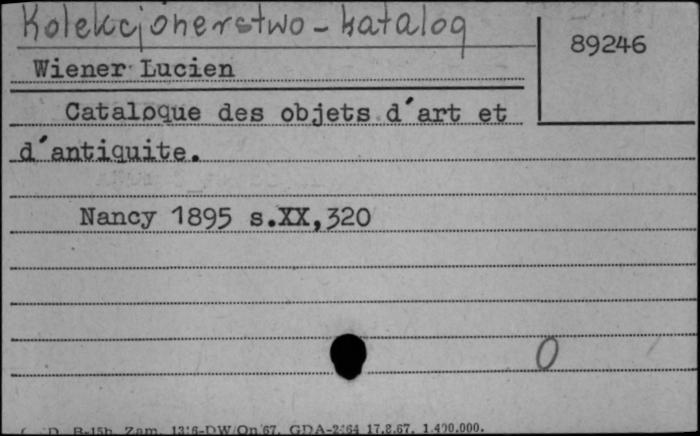 Kolekcjonerstwo - katalog
89246
Wiener Lucien
Cataloque des objets d'art et
d'antiquite.
Nancy 1895 s.XX,320
0
D B-15h Zam. 1316-DW/On/67. GDA-2/64 17.8.67. 1.400.000.